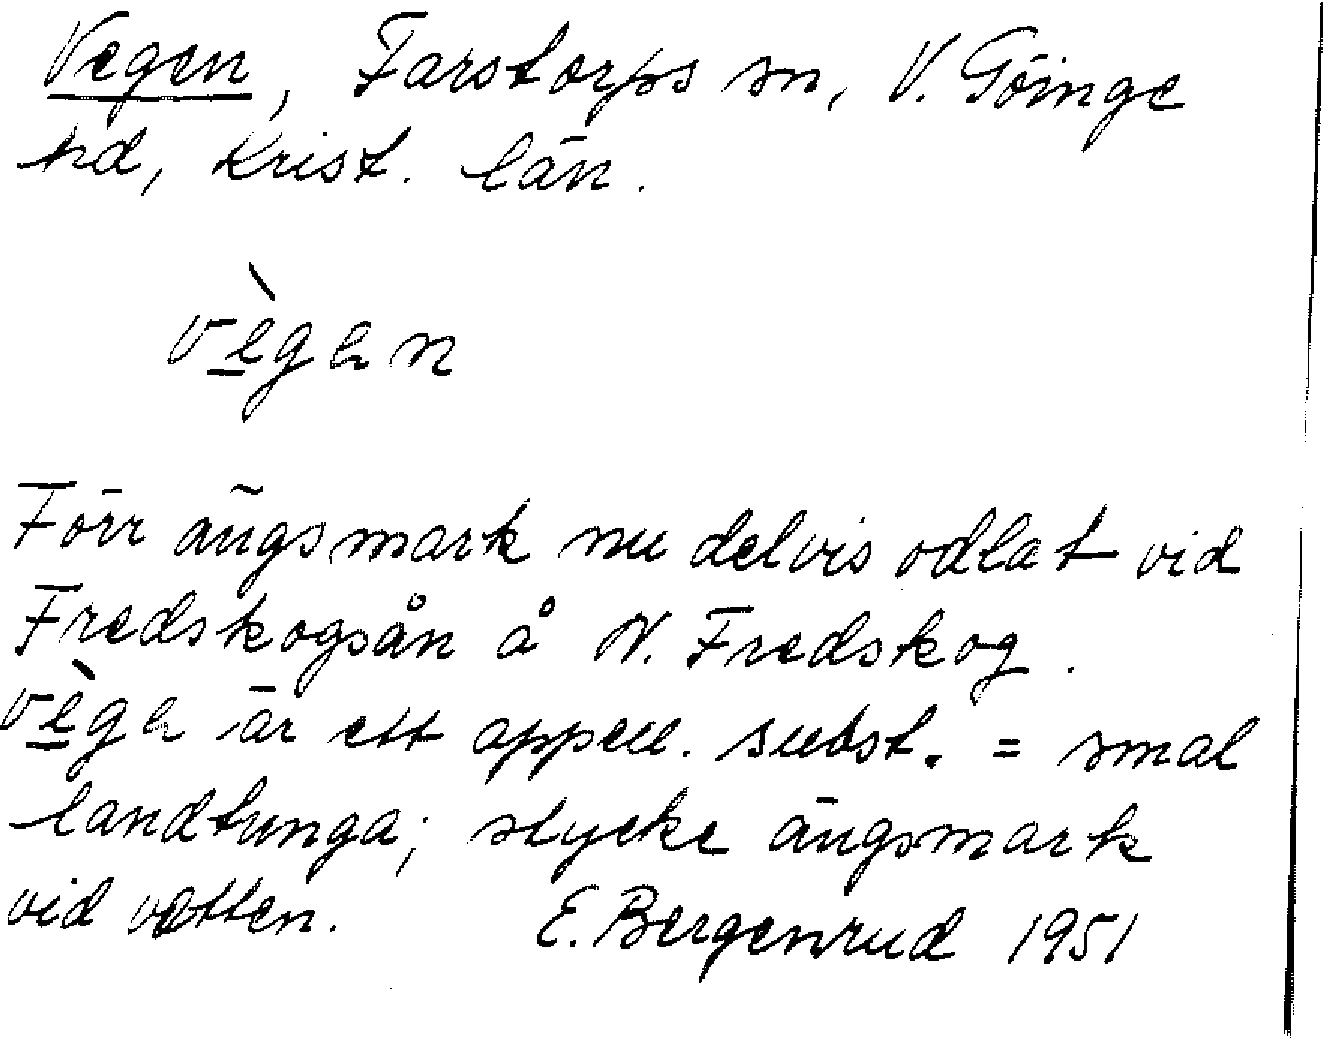 Vegen, Farstorps sn, V. Göinge
hd, Krist. län.
vègen
Förr ängsmark nu delvis odlat vid
Fredskogsån å N. Fredskog.
vège är ett appell. subst. = smal
landtunga; stycke ängsmark
vid vatten. E. Bergenrud 1951